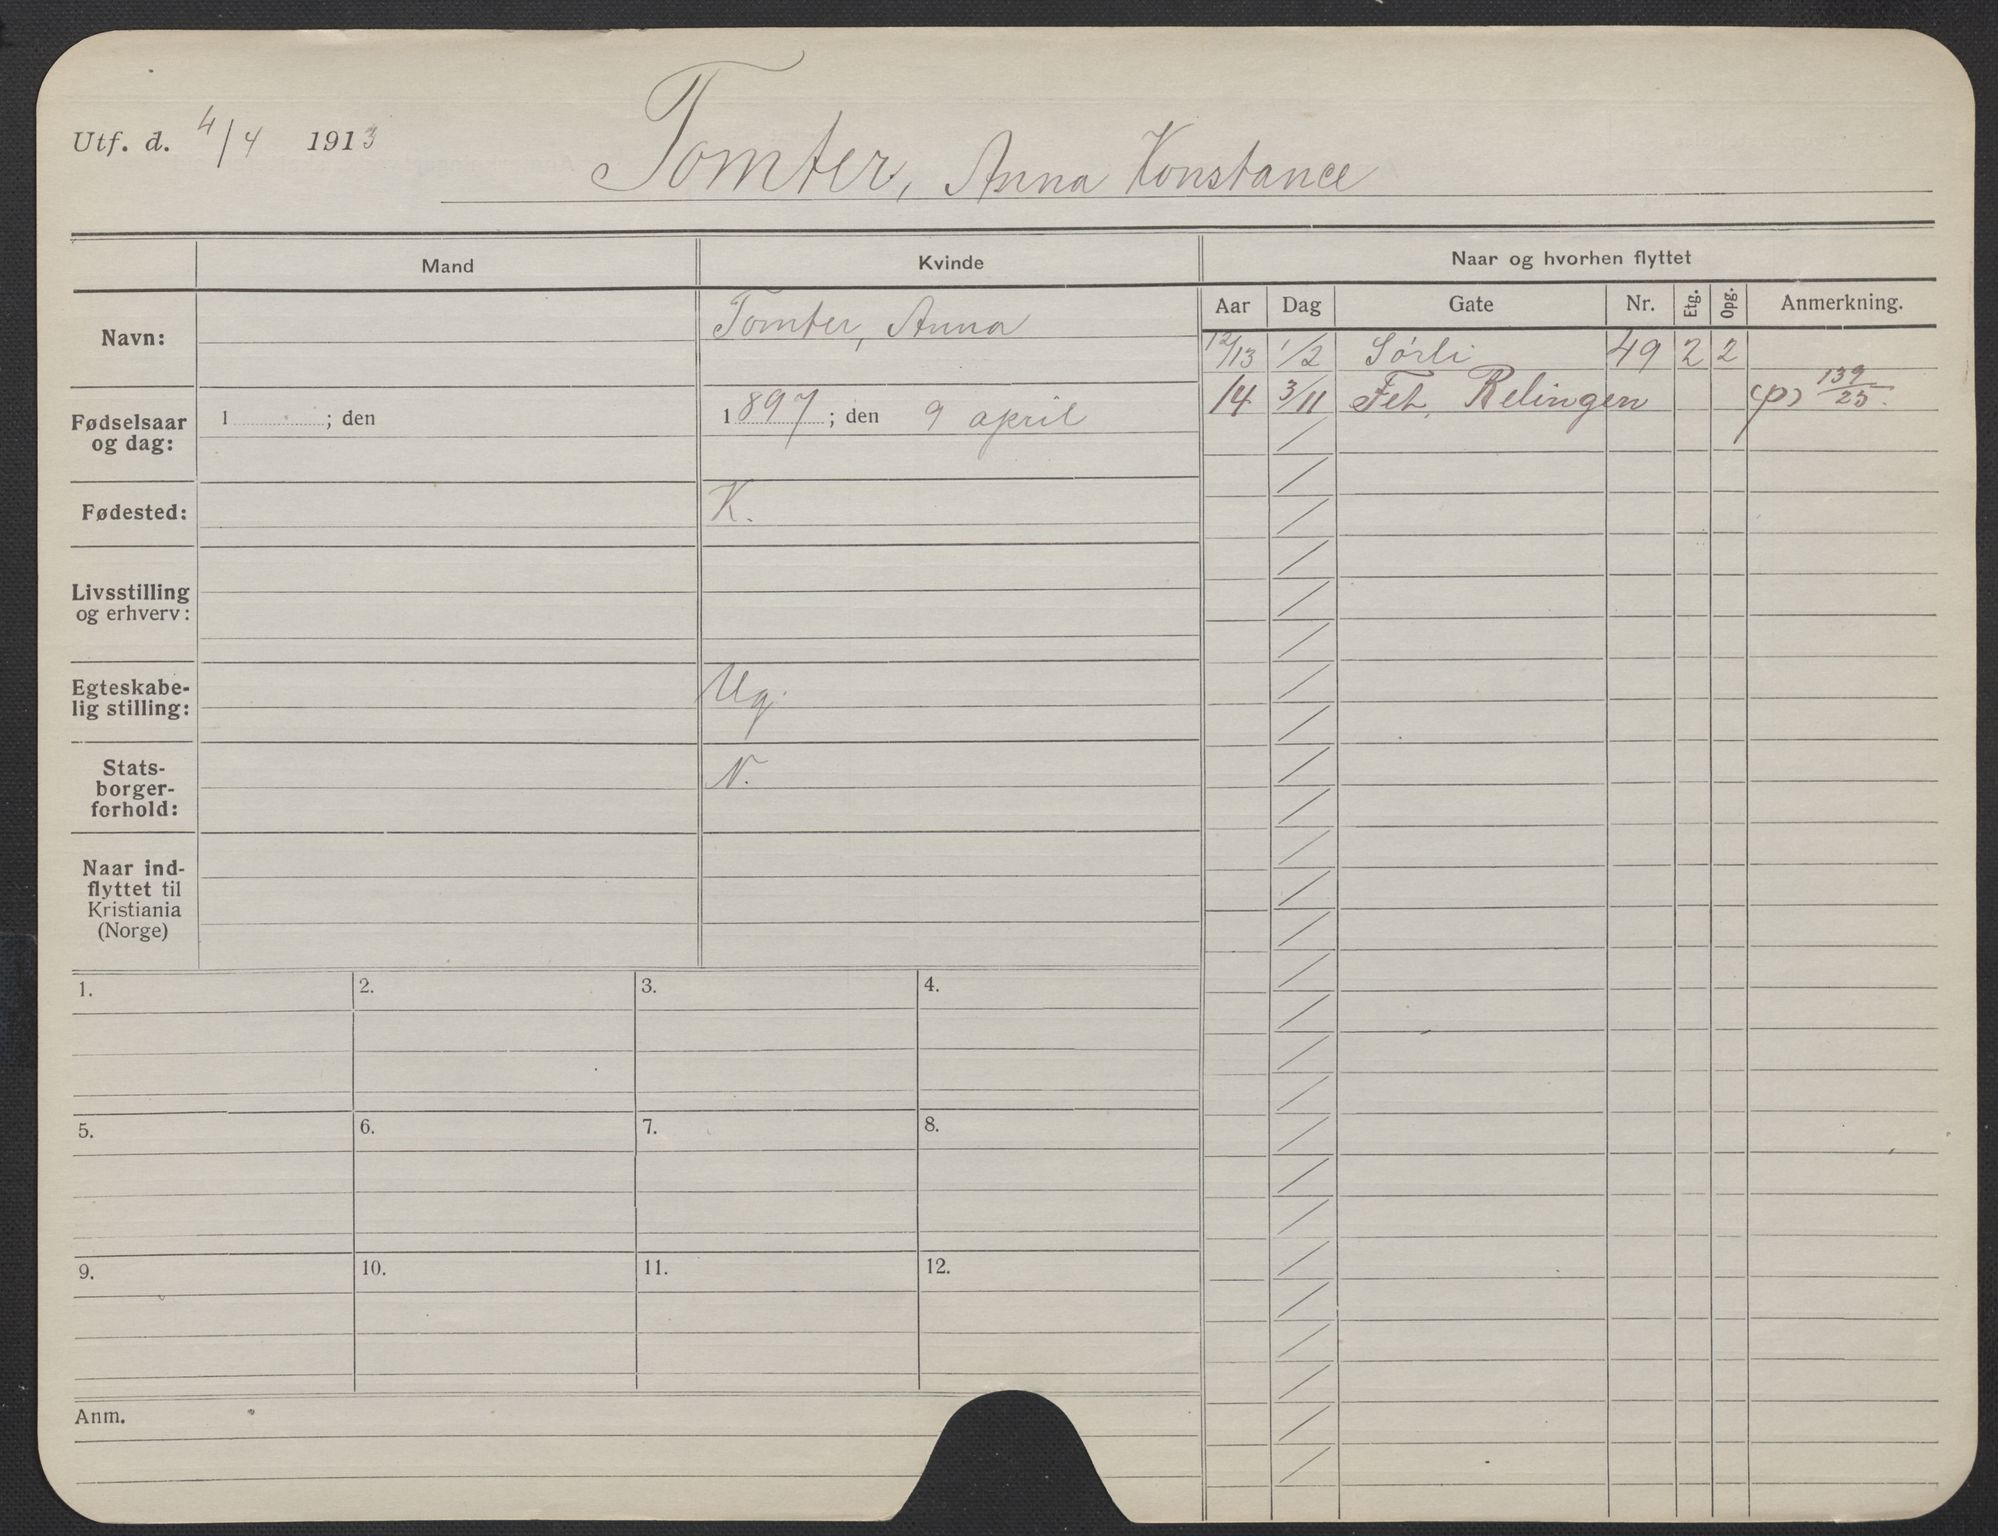 Utf. d. 4/4 1913
Tomter, Anna Konstance
Mand
Kvinde
Naar og hvorhen flyttet
Aar Dag Gate Nr. Etg. Opg. Anmerkning.
Navn:
Tomter, Anna
12/13 1/2 Sørli 49 2 2
14 3/11 Fet, Relingen (p) 139/25.
Fødselsaar
og dag:
1 ; den
1897 ; den 9 april
Fødested:
K.
Livsstilling
og erhverv:
Egteskabe-
lig stilling:
Ug.
Stats-
borger-
forhold:
N.
Naar ind-
flyttet til
Kristiania
(Norge)
1. 2. 3. 4.
5. 6. 7. 8.
9. 10. 11. 12.
Anm.